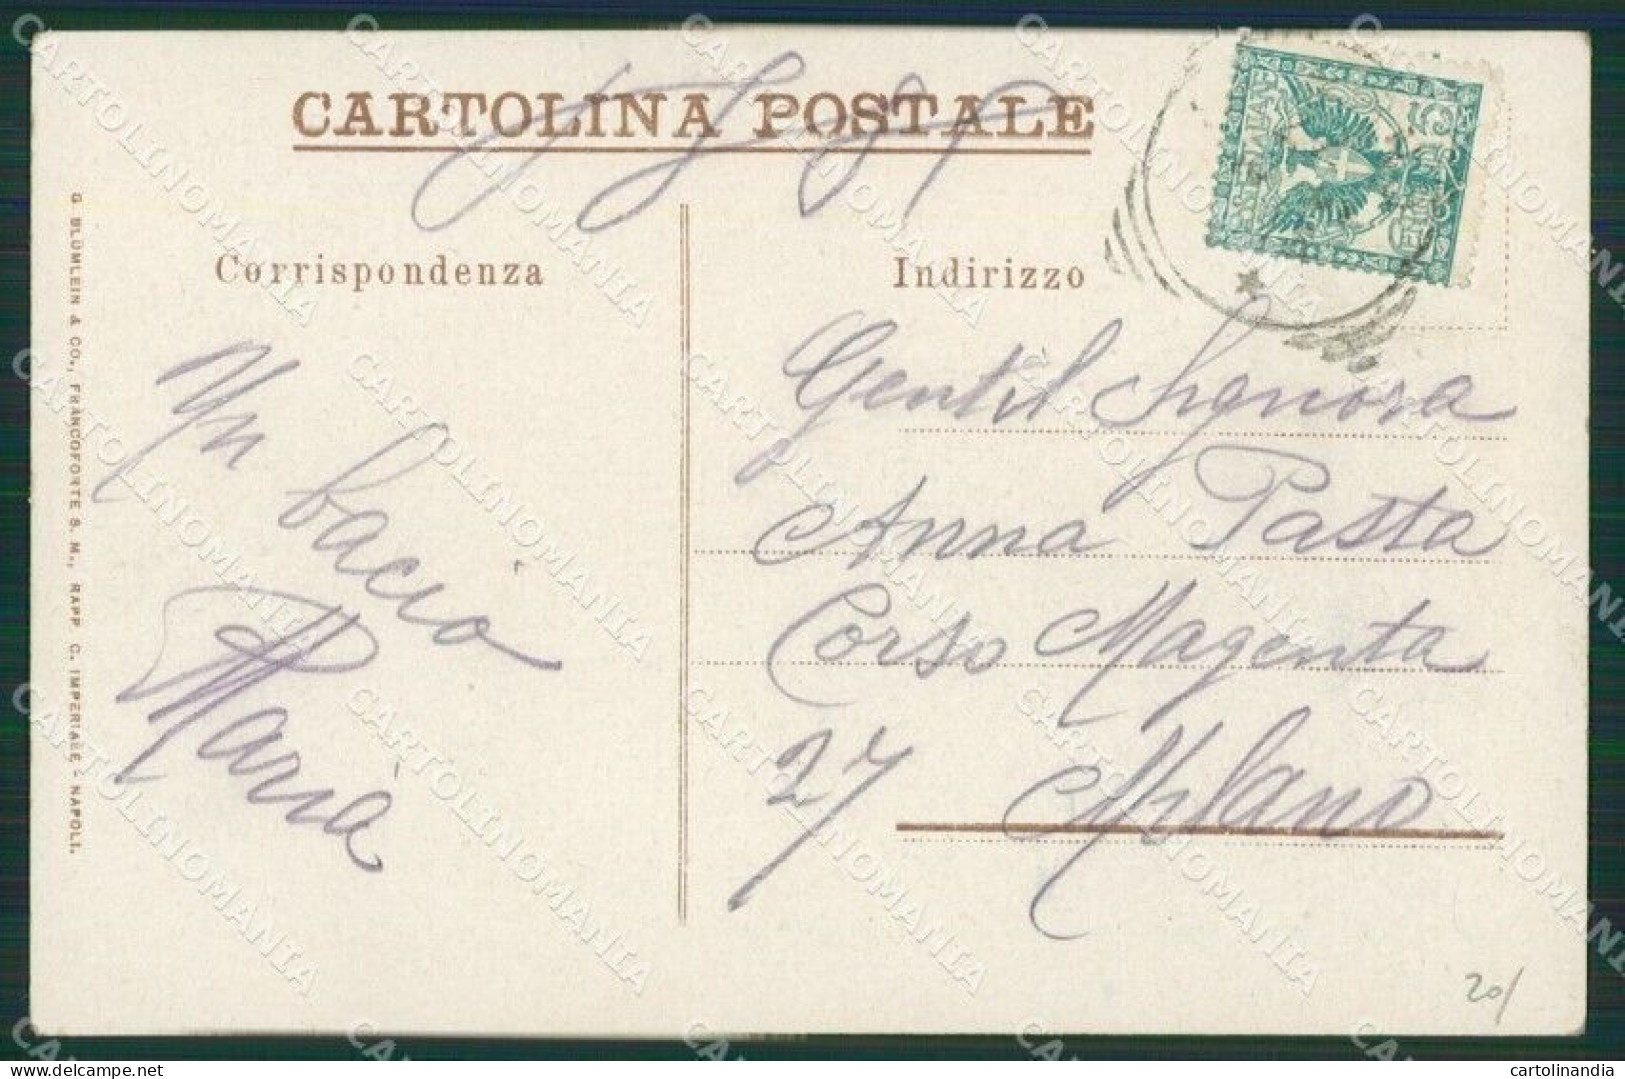 CARTOLINA POSTALE
Corrispondenza
Indirizzo
Un bacio
Maria
Gentil Signora
Anna Pasta
Corso Magenta
27 Milano
G. BLÜMLEIN & CO., FRANCOFORTE S. M., RAPP. C. IMPERIALE - NAPOLI.
20/
CARTOLINOMANIA
cartolinandia